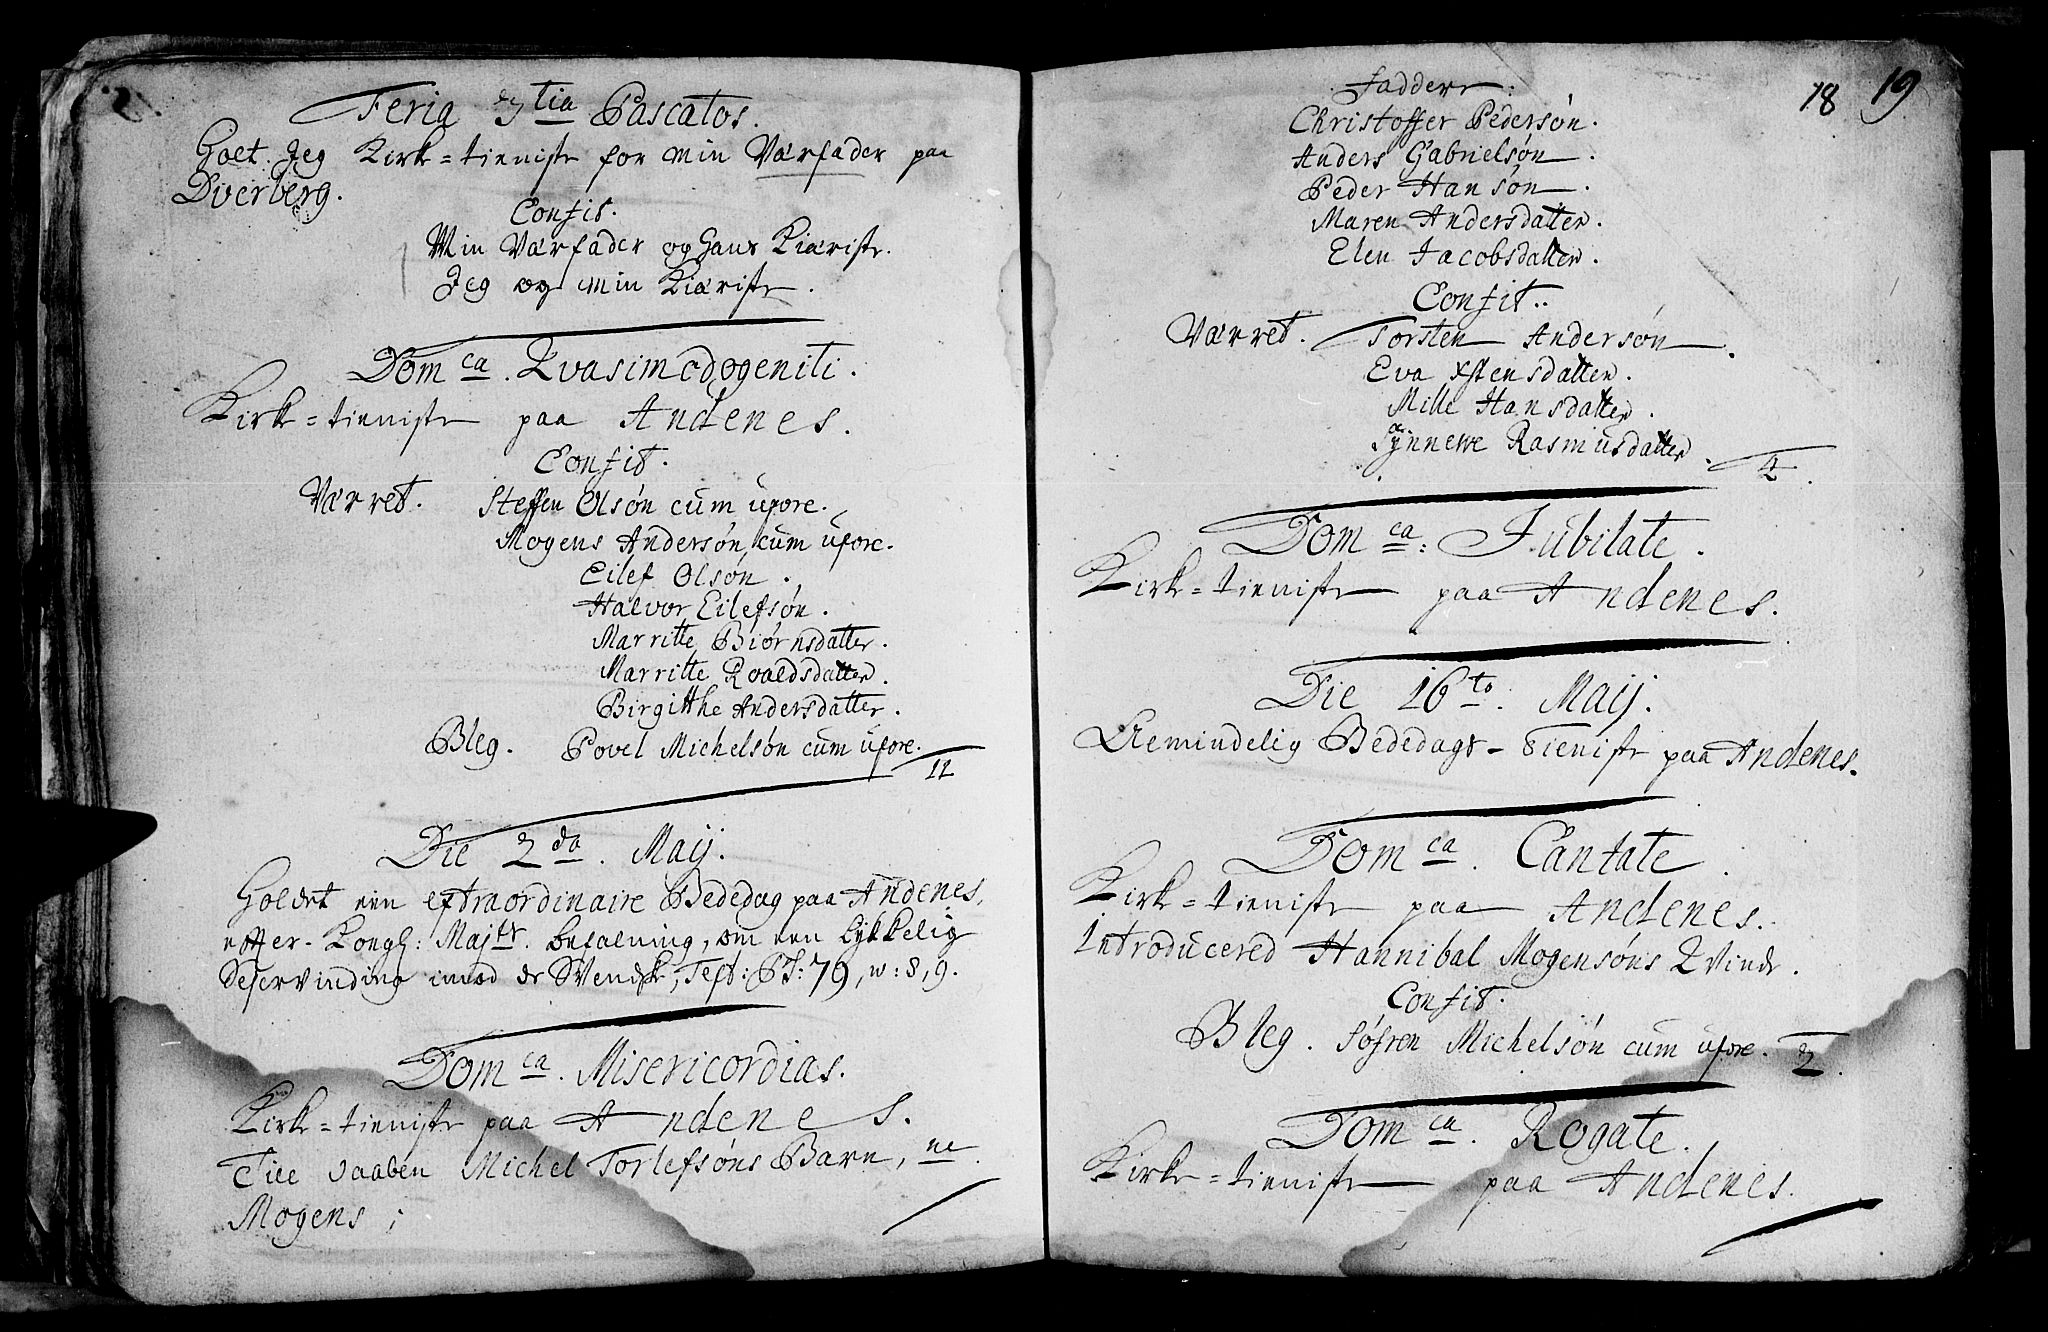 Feria 3 tia Pascatos.
Holt Jeg Kirke=tieniste for min Værfader paa
Dverberg.
Confit.
Min Værfader og Hans Kiæriste.
Jeg og min Kiæriste.
Dom ca. Qvasimodogeniti.
Kirke=tieniste paa Andenes.
Confit.
Værret. Steffen Olsøn cum uxore.
Mogens Andersøn cum uxore.
Eilef Olsøn.
Halvor Eilefsøn.
Marritte Biørnsdatter.
Marritte Roaldsdatter.
Birgitthe Andersdatter.
Bleg. Povel Michelsøn cum uxore.
11
Die 2 da. Maij.
Holdet een extraordinaire Bededag paa Andenes,
efter Kongl: Majts. befalning, om een lykkelig
Sejervinding imod de Svendske, Text: Ps: 79, w: 8, 9.
Dom ca. Misericordias.
Kirke=tieniste paa Andenes.
Till daaben Michel Torlefsøns Barn, ne.
Mogens;
18 19
Faddere:
Christoffer Pedersøn.
Anders Gabrielsøn.
Peder Hansøn.
Maren Andersdatter.
Elen Jacobsdatter.
Confit..
Værret. Torsten Andersøn.
Eva Xstensdatter.
Mille Hansdatter.
Synnewe Rasmusdatter.
4.
Dom ca: Jubilate.
Kirke=tieniste paa Andenes.
Die 16 to. Maij.
Almindelig Bededags-Tieniste paa Andenes.
Dom ca. Cantate.
Kirke=tieniste paa Andenes.
Introducered Hannibal Mogensøns Qvinde.
Confit.
Bleg. Søfren Michelsøn cum uxore. 2.
Dom ca. Rogate.
Kirke=tieniste paa Andenes.